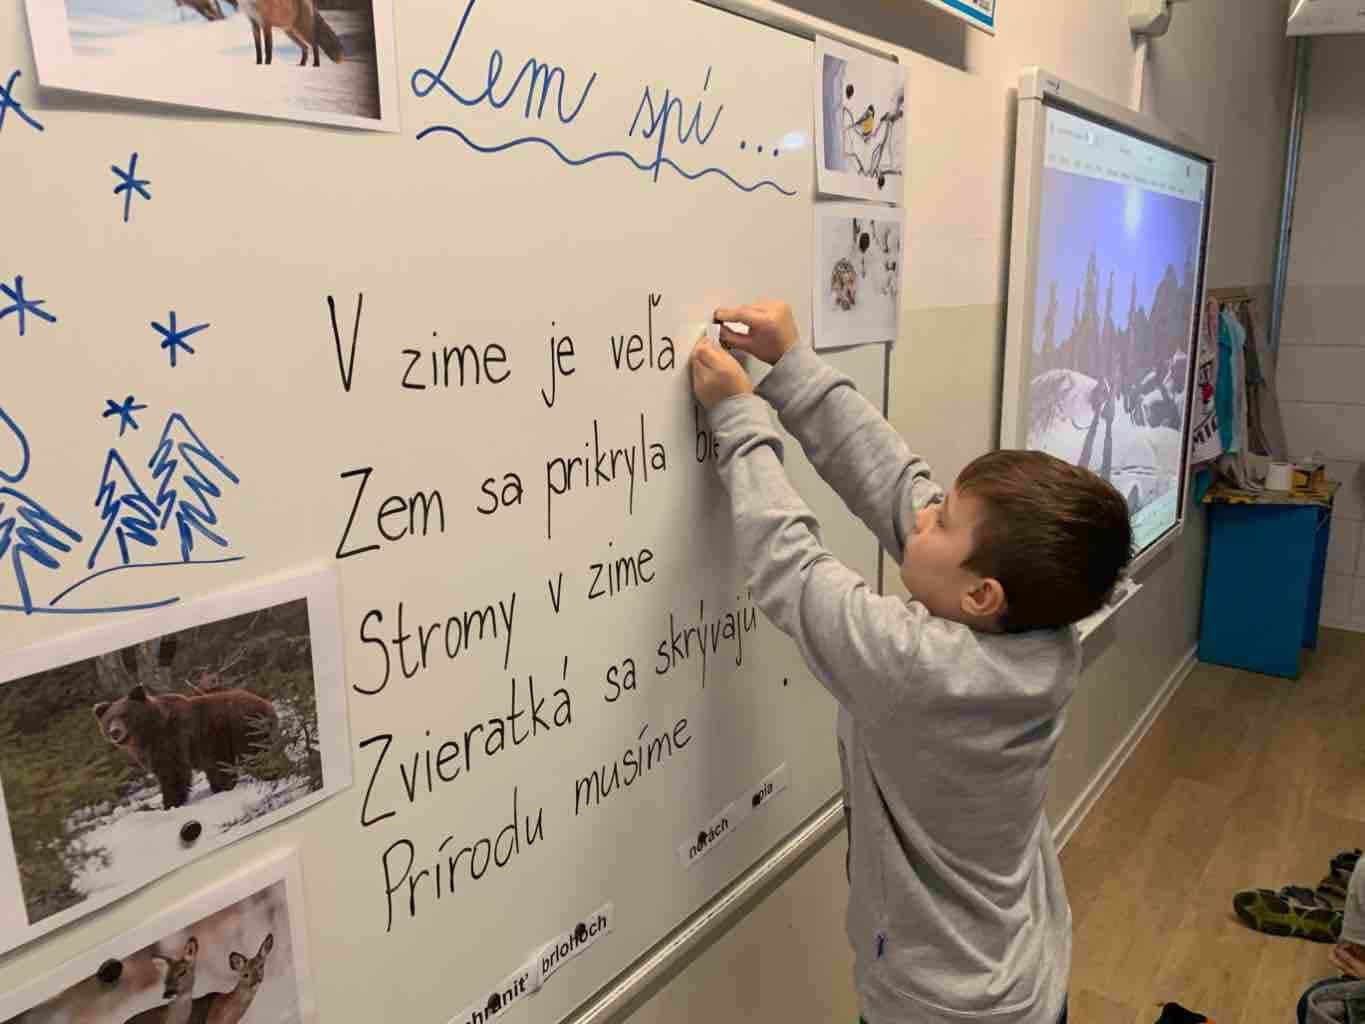 Zem spí...
V zime je veľa
Zem sa prikryla
Stromy v zime
Zvieratká sa skrývajú
.
Prírodu musíme
norách
spia
chrániť
brlohoch